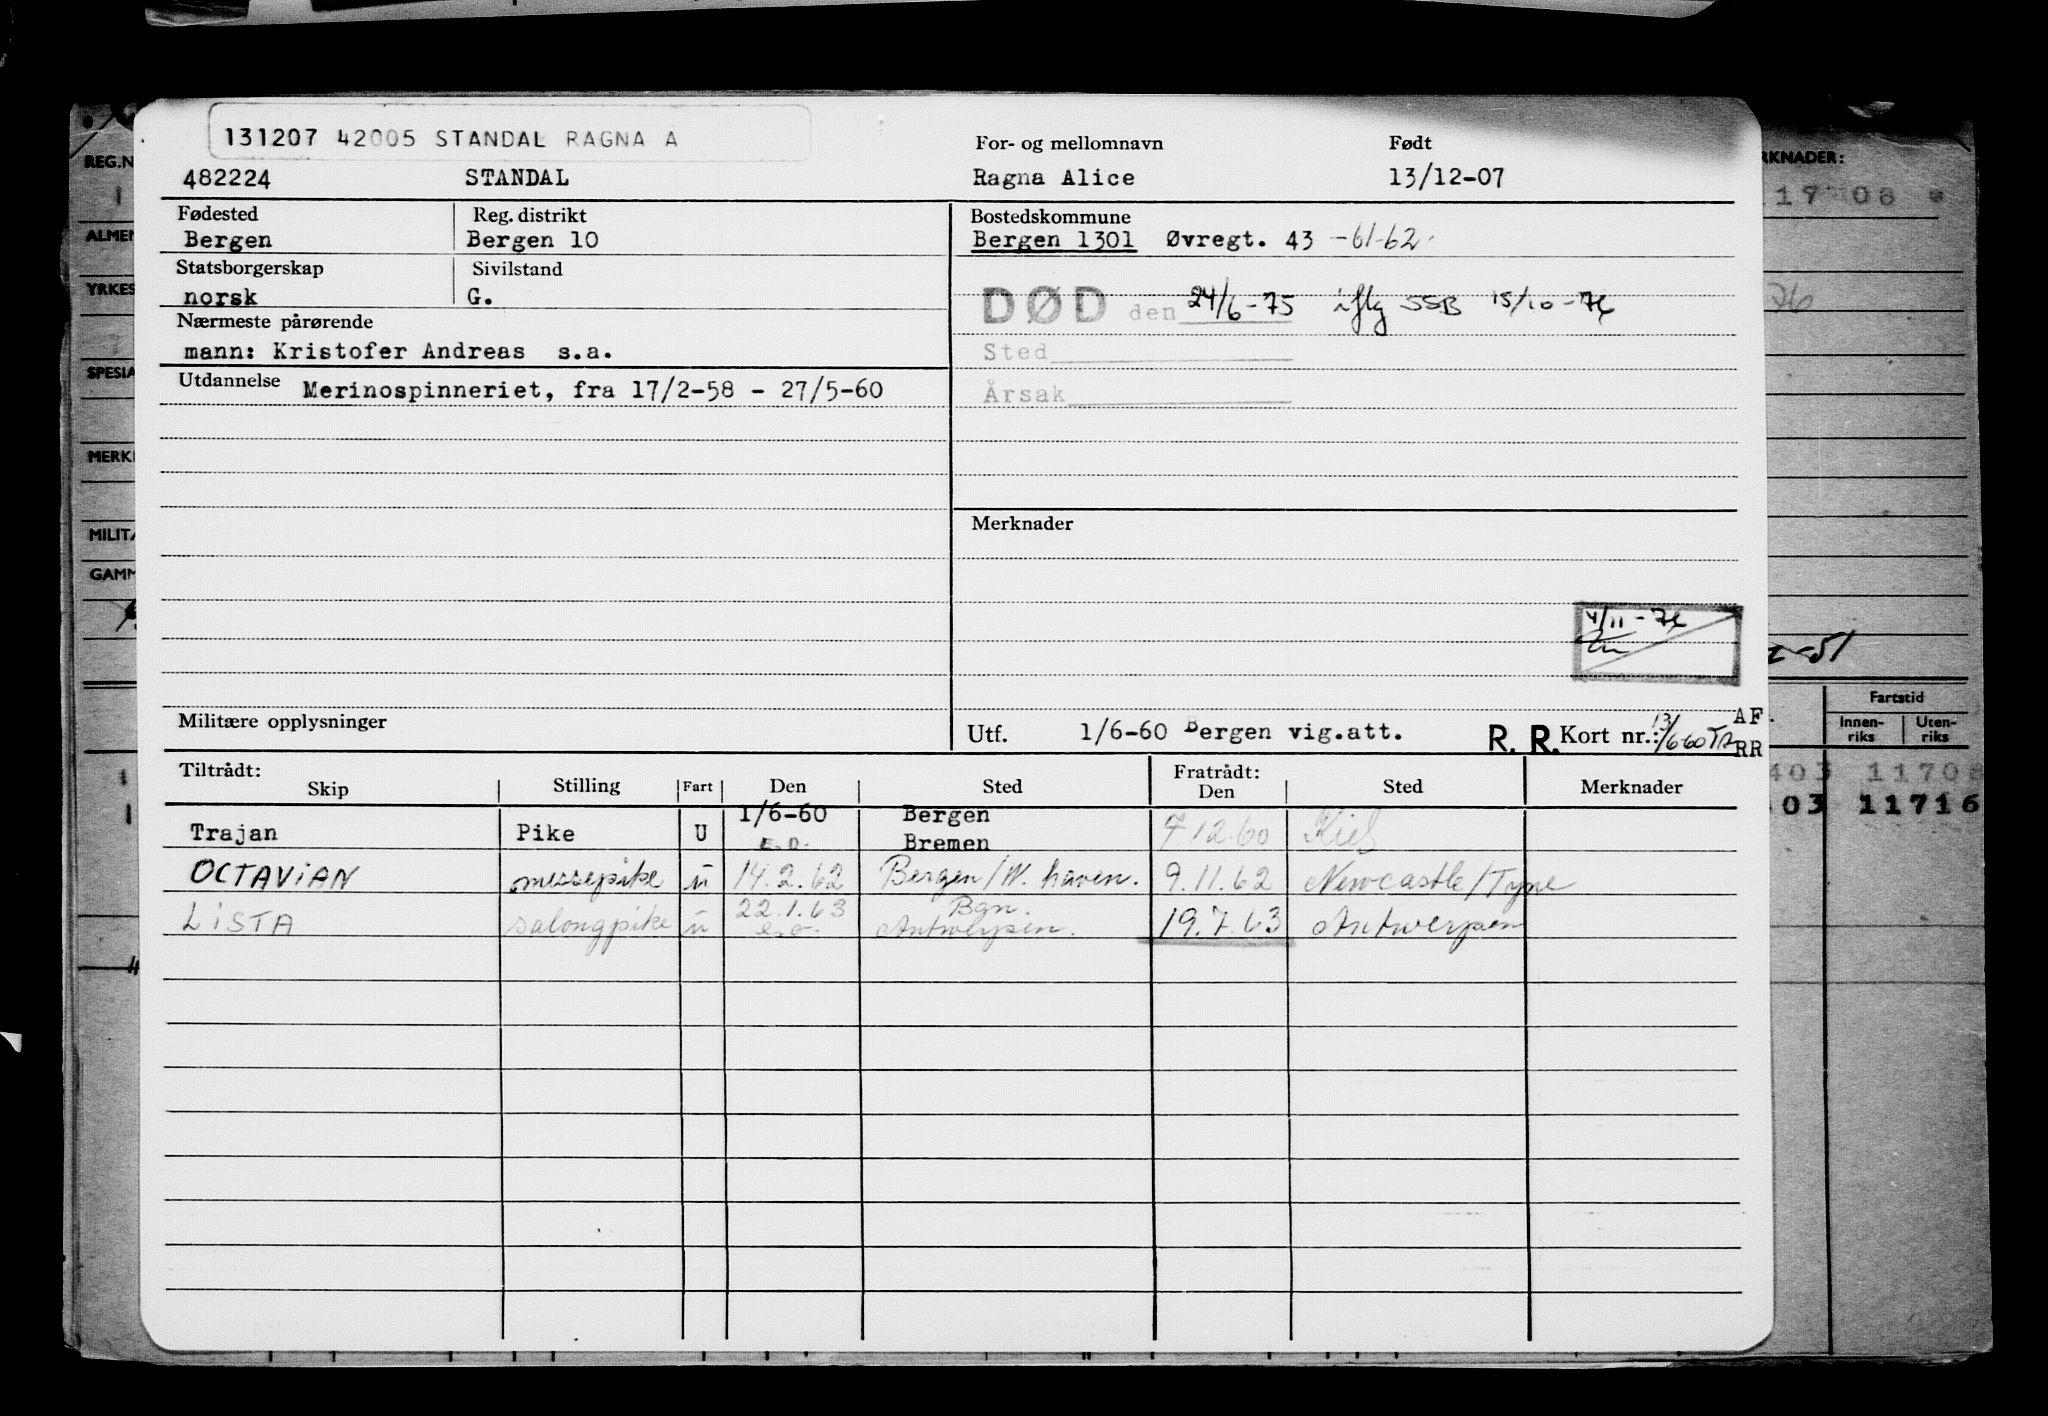 131207 42005 STANDAL RAGNA A
For- og mellomnavn Født
482224 STANDAL Ragna Alice 13/12-07
Fødested Reg. distrikt Bostedskommune
Bergen Bergen 10 Bergen 1301 Øvregt. 43 -61-62.
Statsborgerskap Sivilstand
norsk G.
DØD den 24/6-75 iflg SSB 15/10-76
Nærmeste pårørende
mann: Kristofer Andreas s.a.
Sted
Utdannelse Merinospinneriet, fra 17/2-58 - 27/5-60
Årsak
Merknader
4/11-76
Militære opplysninger
Utf. 1/6-60 Bergen vig.att. R. R. Kort nr.: 13/6-60 AF.
RR
Tiltrådt: Fratrådt:
Skip Stilling Fart Den Sted Den Sted Merknader
1/6-60 Bergen
Trajan Pike U e.o. Bremen 7.12.60 Kiel
OCTAVIAN messepike u 14.2.62 Bergen/W.haven. 9.11.62 Newcastle/Tyne
22.1.63 Bgn.
LISTA salongpike u e.o. Antwerpen. 19.7.63 Antwerpen
REG.N
ALMEN
YRKES
SPESIA
MERK
MILITÆ
GAMM
RKNADER:
11708
76
-51
Fartstid
Innen-riks Uten-riks
403 11708
03 11716